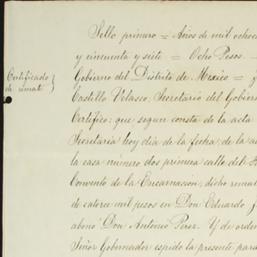 Sello primero = Años de mil ochoc
y cincuenta y siete = Ocho Pesos. —
Certificado
de remate
Gobierno del Distrito de Mexico =
Castillo Velasco, Secretario del Gobier
Certifico: que segun consta de la acta
Secretaria hoy dia de la fecha, de la a
la casa número dos primera calle del
Convento de la Encarnacion, dicho rema
de catorce mil pesos en Don Eduardo
abono Don Antonio Perez. Y de orden
Señor Gobernador espido la presente para